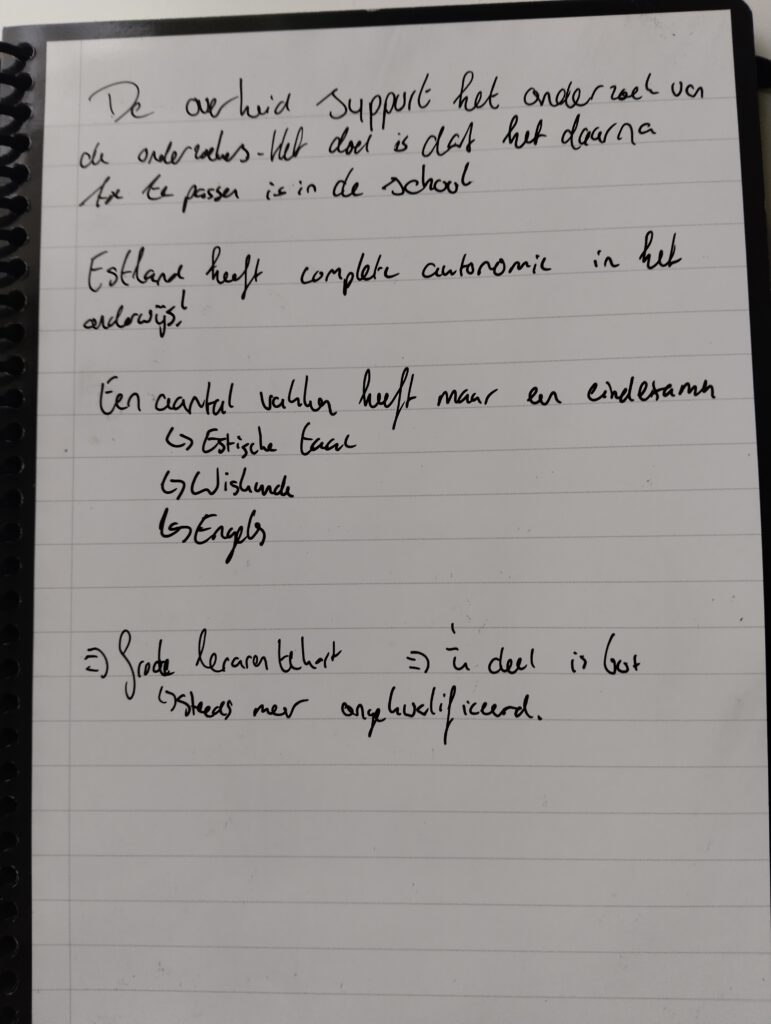 De overheid support het onderzoek van
de onderzoekers. Het doel is dat het daarna
toe te passen is in de school
Estland heeft complete autonomie in het
onderwijs!
Een aantal vakken heeft maar een eindexamen
↳ Estische taal
↳ Wiskunde
↳ Engels
⇒ Grote lerarentekort ⇒ deel is
↳ steeds meer ongekwalificeerd.